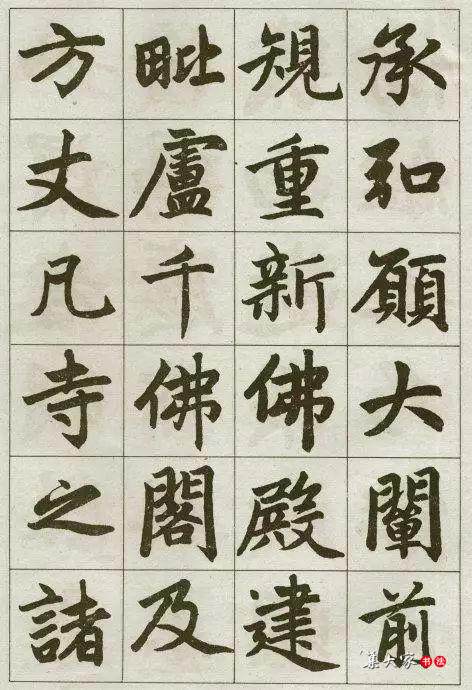 承弘願大闡前
規重新佛殿建
毗盧千佛閣及
方丈凡寺之諸
集大家书法